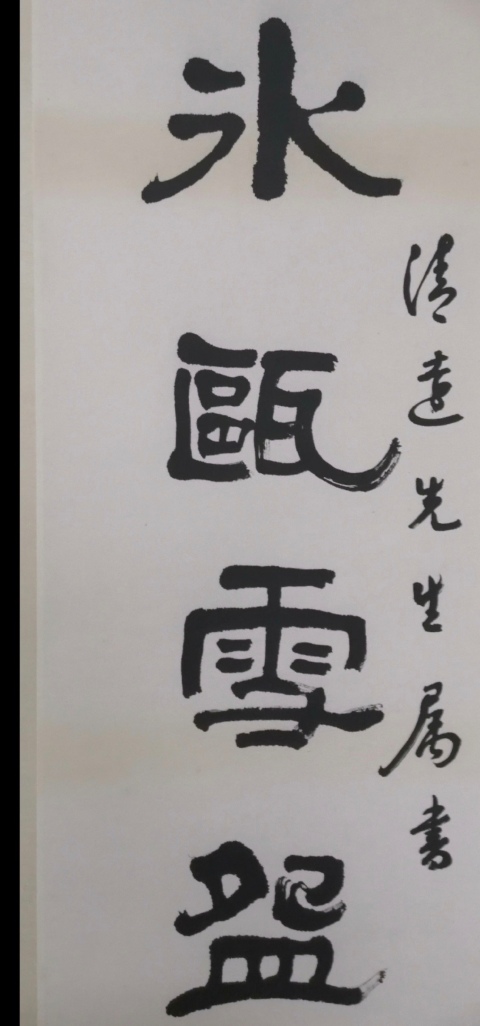 清遠先生属書
氷甌雪盌